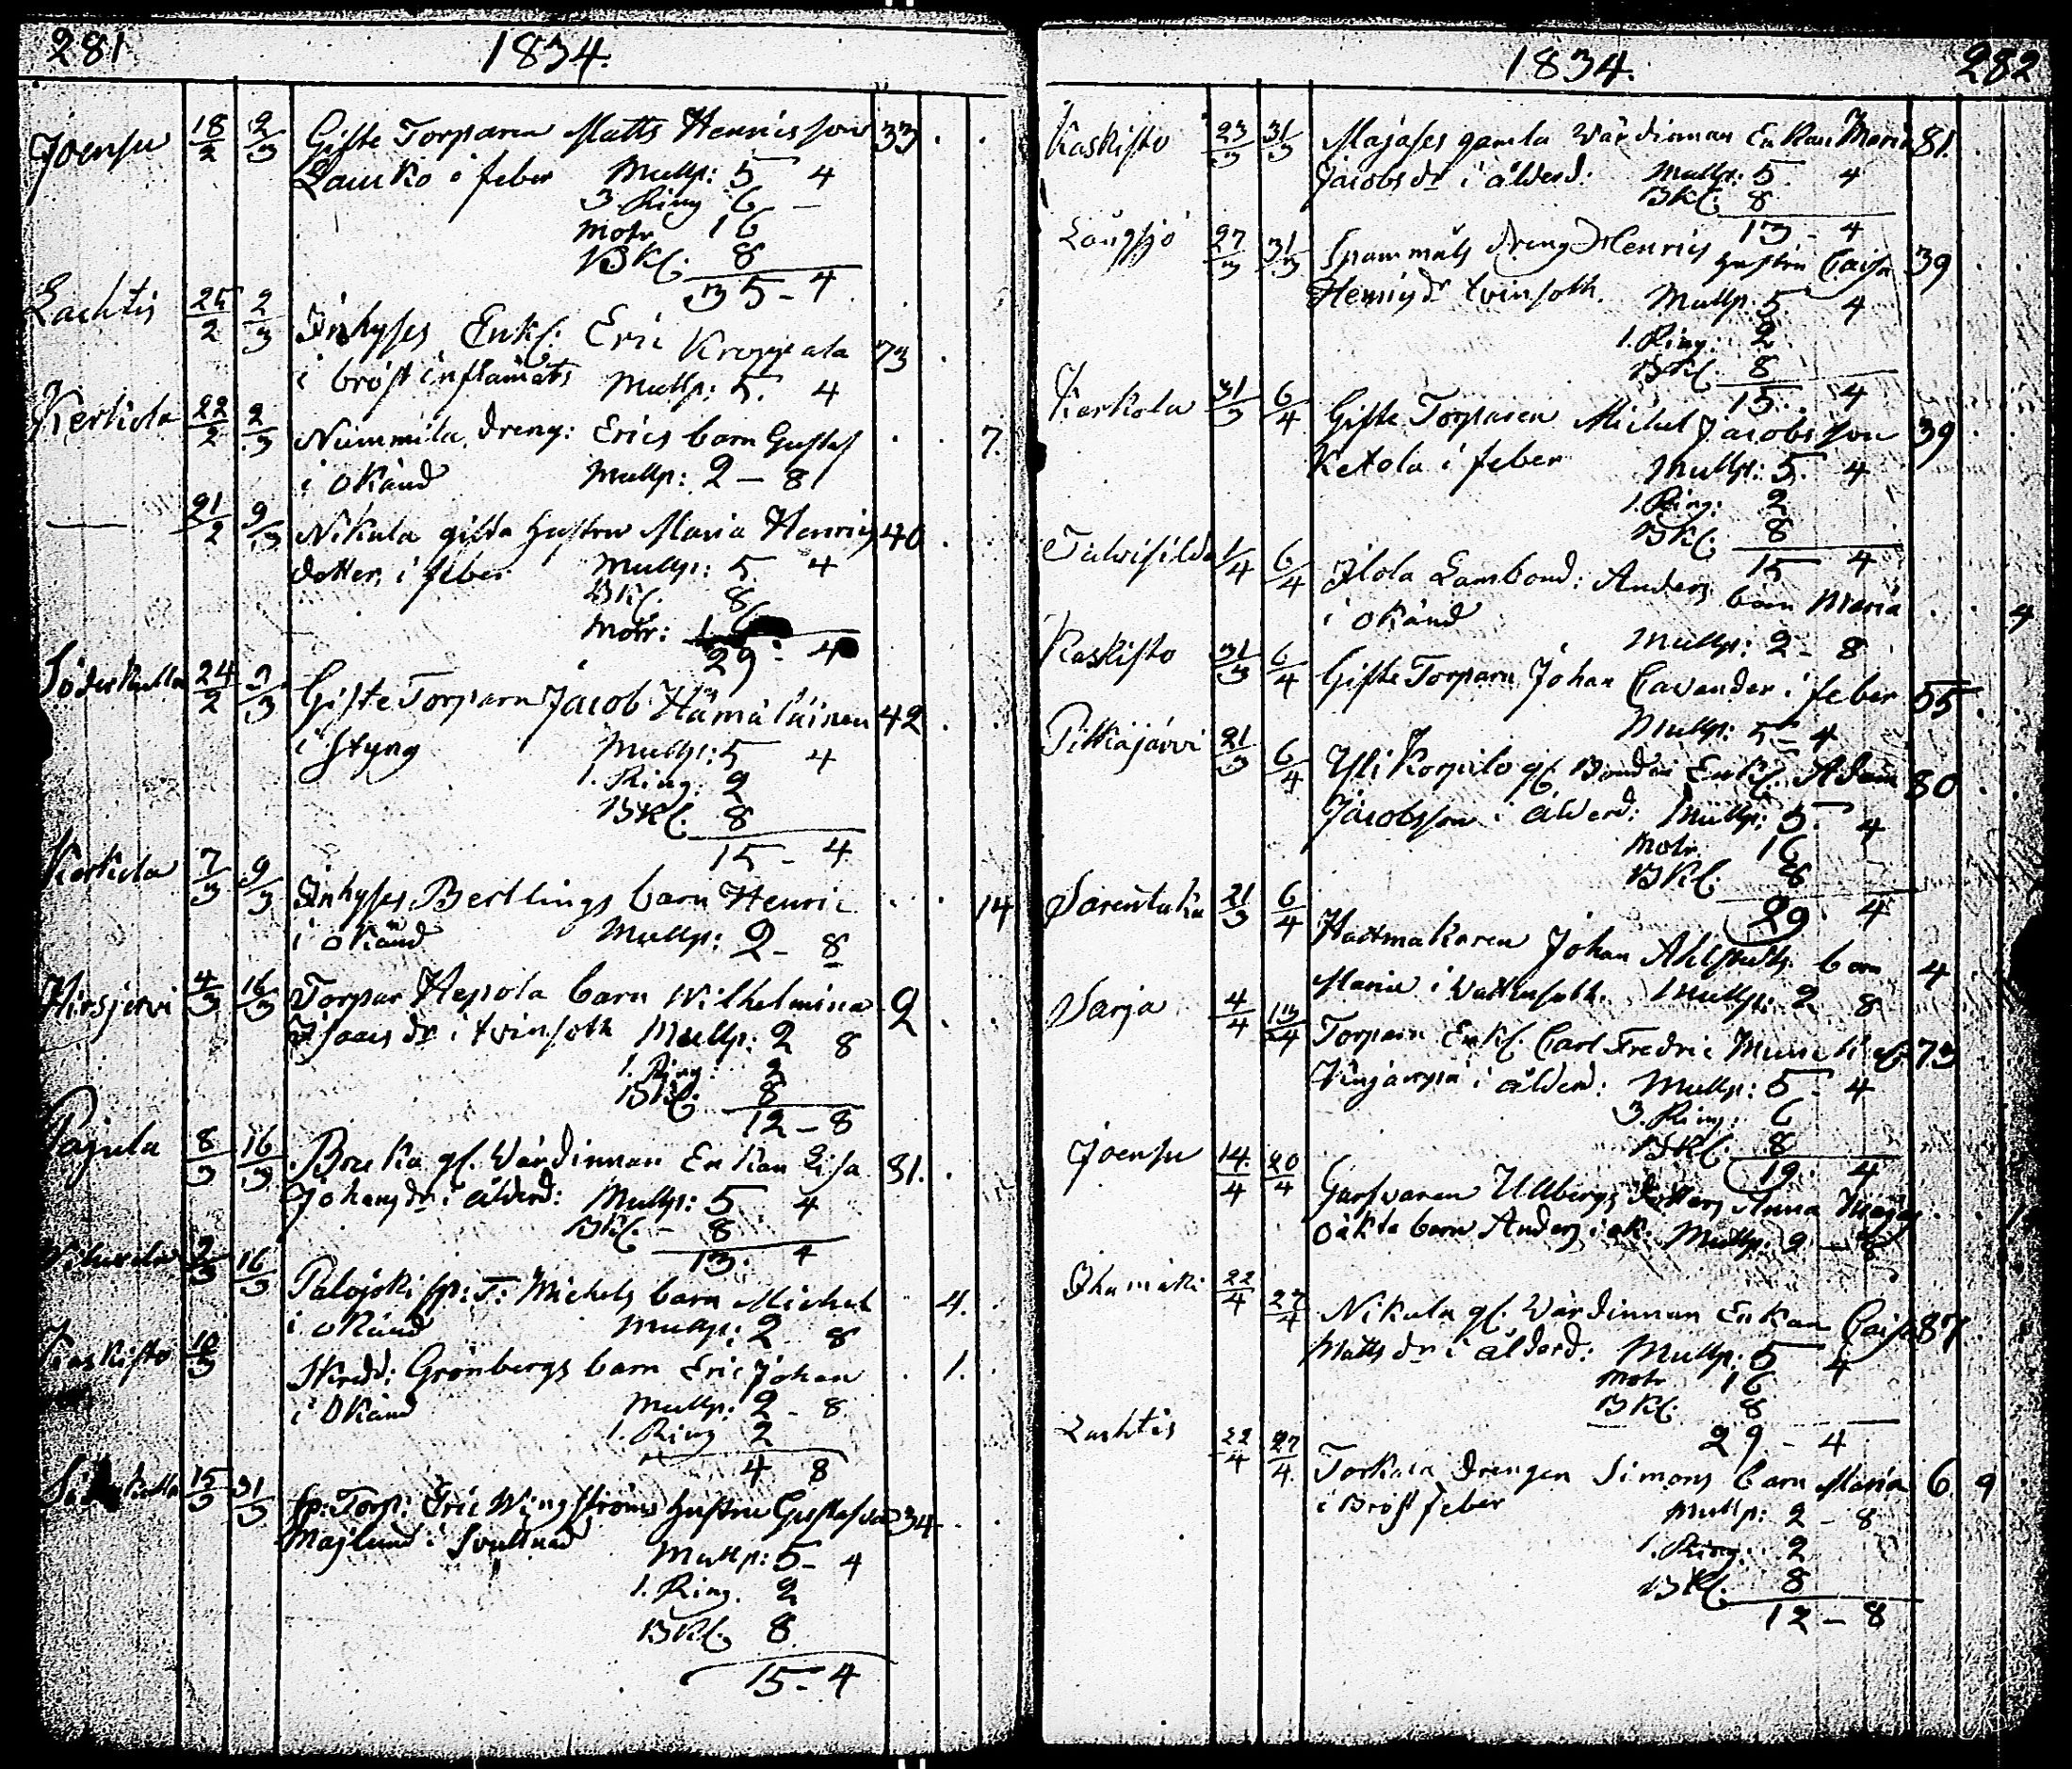 281 1834.
Joensu 18/2 2/3 Gifte Torparen Matts Henricsson 33
Lauko i feber Mullp: 5 4
3. Ring 6 —
Motr 16
BKl. 8
35 - 4
Lachtis 25/2 2/3 Inhyses Enkl: Eric 73
i bröst inflamāts Mullp: 5. 4
Kerkola 22/2 2/3 Nummila Dreng: Erics barn Gustaf 7.
i okänd Mullp: 2 — 8
— 21/2 9/3 Nikula gifta hustru Maria Henrics 40
dotter, i feber Mullp: 5 4
BKl. 8
Motr:
29 - 4
Söderkulla 24/2 9/3 Gifte Torparn Jacob Hämäläinen 42
i styng Mullp: 5 4
1. Ring. 2
BKl. 8
15 - 4
Kerkola 7/3 9/3 Inhyses Bertlings barn Henric 14
i okänd Mullp: 2 - 8
Hirsjervi 4/3 16/3 Torpar Hepola barn Wilhelmina 2
Isaacs dr i tvinsoth Mullp: 2 8
1. Ring: 2
BKl. 8
12 - 8
Pajula 8/3 16/3 Bruka gl. Värdinnan Enkan Lisa 81.
Johans dr i ålderd: Mullp: 5 4
BKl. - 8
13. 4
16/3 Palojoki sp: T: Michels barn Michel 4.
i okänd Mullp: 2 8
Kaskisto 10/3 Skredd: Grönbergs barn Eric Johan 1.
i okänd Mullp: 2 - 8
1. Ring 2
4 8
15/3 31/3 sp: Torp: Eric Wingströms hustru Gustafva 34
Majlund i Svullnad Mullp: 5 - 4
1. Ring. 2
BKl. 8.
15 - 4
1834. 282
Kaskisto 23/3 31/3 Majases gamla Värdinnan Enkan Maria 81.
Jacobs dr i ålderd: Mullp: 5. 4
BKl. 8
13 - 4
Långsjö 27/3 31/3 dreng Henrics hustru Caisa 39
Henrics dr tvinsoth. Mullp: 5. 4
1. Ring: 2.
BKl. 8
15. 4
Kerkola 31/3 6/4 Gifte Torparen Michel Jacobsson 39
Ketola i feber Mullp: 5. 4
1. Ring: 2
BKl. 8
15 4
Talvisilda 1/4 6/4 Ilola Lambond: Anders barn Maria 4
i okänd Mullp: 2 - 8
Kaskisto 31/3 6/4 Gifte Torparn Johan Cavander i feber 55
Mullp: 5 - 4
Pitkäjärvi 21/3 6/4 Yli Korpilo gl. Bonden Enkl. Adam 80
Jacobsson i ålderd: Mullp: 5. 4
Motr 16
BKl. 8
29. 4
Sarentaka 21/3 6/4 Hattmakaren Johan Ahlstedts barn 4
Maria i Vattusoth. Mullp: 2 8
Sarja 4/4 13/4 Torparn Enkl. Carl Fredric 73
i ålderd: Mullp: 5. 4
3. Ring: 6
BKl. 8
19. 4
Joensu 14/4 20/4 Garfvaren Ullbergs dotters Anna 1
oäkta barn Anders i ok: Mullp: 2 — 8
22/4 27/4 Nikula gl. Värdinnan Enkan Caisa 87
Matts dr i ålderd: Mullp: 5 4
Motr 16
BKl. 8
29 - 4
Lachtis 22/4 27/4 Torkala Drengen Simons barn Maria 6 9
i Bröst feber Mullp: 2 - 8
1. Ring: 2
BKl. 8
12 - 8